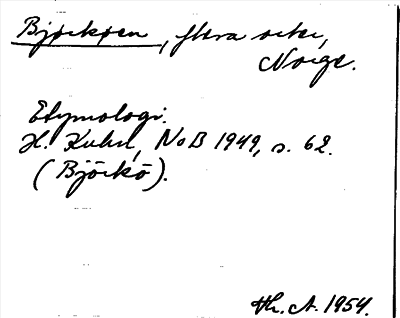 Bjørkøen, flera orter,
Norge.
Etymologi.
H. Kuhn, NoB 1949, s. 62.
(Björkö).
Th. A. 1954.